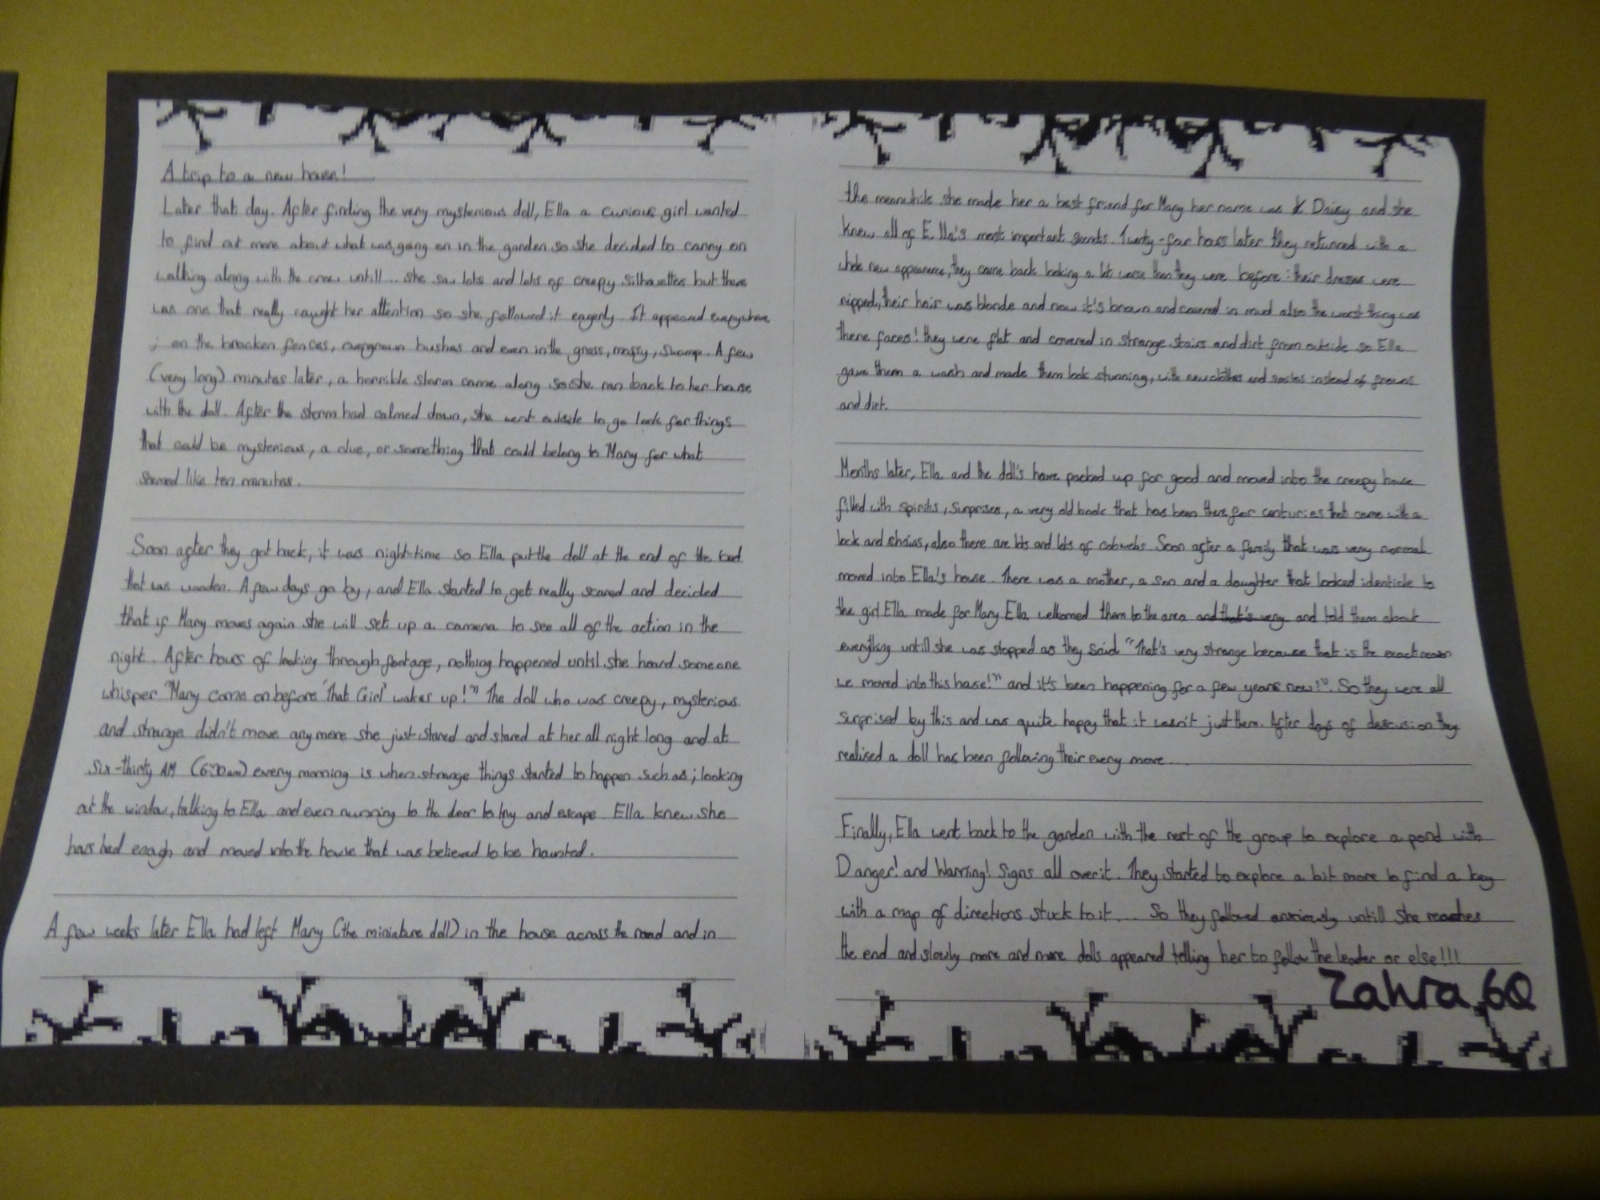 A trip to a new house!
Later that day. After finding the very mysterious doll, Ella a curious girl wanted
to find out more about what was going on in the garden so she decided to carry on
walking along with the crow untill... she saw lots and lots of creepy silhouettes but there
was one that really caught her attention so she followed it eagerly. It appeared everywhere
; on the brocken fences, overgrown bushes and even in the grass, mossy, swamp. A few
(very long) minutes later, a horrible storm came along so she ran back to her house
with the doll. After the storm had calmed down, she went outside to go look for things
that could be mysterious, a clue, or something that could belong to Mary for what
seemed like ten minutes.
Soon after they got back, it was night-time so Ella put the doll at the end of the bed
that was wooden. A few days go by, and Ella started to get really scared and decided
that if Mary moves again she will set up a camera to see all of the action in the
night. After hours of looking through footage, nothing happened until she heard someone
whisper "Mary come on before 'That Girl' wakes up!" The doll who was creepy, mysterious
and strange didn't move any more she just stared and stared at her all night long and at
six-thirty AM (6:30am) every morning is when strange things started to happen such as; looking
at the window, talking to Ella and even running to the door to try and escape. Ella knew she
has had enough and moved into the house that was believed to be haunted.
A few weeks later Ella had left Mary (the miniature doll) in the house across the road and in
the meanwhile she made her a best friend for Mary her name was Daisy and she
knew all of Ella's most important secrets. Twenty-four hours later they returned with a
whole new appearance, they came back looking a lot worse then they were before: their dresses were
ripped, their hair was blonde and now it's brown and covered in mud also the worst thing was
there faces! they were flat and covered in strange stains and dirt from outside so Ella
gave them a wash and made them look stunning, with new clothes and smiles instead of frowns
and dirt.
Months later, Ella and the doll's have packed up for good and moved into the creepy house
filled with spirits, surprises, a very old book that has been there for centuries that came with a
lock and chains, also there are lots and lots of cobwebs. Soon after a family that was very normal
moved into Ella's house. There was a mother, a son and a daughter that looked identicle to
the girl Ella made for Mary. Ella welkomed them to the area and that's very and told them about
everything untill she was stopped as they said "That's very strange because that is the exact reason
we moved into this house!" and it's been happening for a few years now!". So they were all
surprised by this and was quite happy that it wasn't just them. After days of descusion they
realised a doll has been following their every move....
Finally, Ella went back to the garden with the rest of the group to explore a pond with
Danger! and Warning! Signs all over it. They started to explore a bit more to find a key
with a map of directions stuck to it.... So they followed anxiously untill she reaches
the end and slowly more and more dolls appeared telling her to follow the leader or else!!!
Zahra 6Q